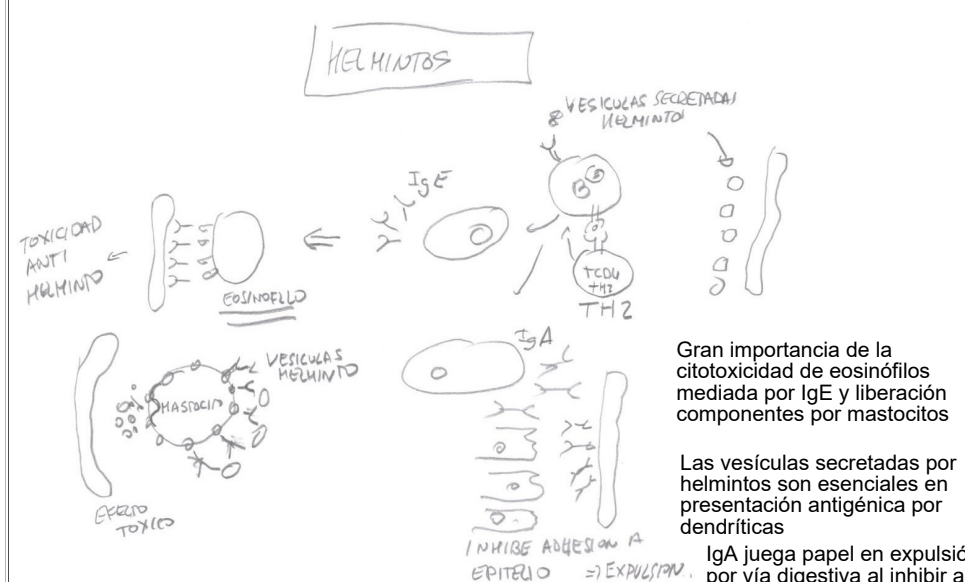 HELMINTOS
VESICULAS SECRETADAS
HELMINTO
IgE
B
TCD4
TH2
TH2
TOXICIDAD
ANTI
HELMINTO
EOSINOFILO
VESICULAS
HELMINTO
MASTOCITO
EFECTO
TOXICO
IgA
INHIBE ADHESION A
EPITELIO => EXPULSION.
Gran importancia de la
citotoxicidad de eosinófilos
mediada por IgE y liberación
componentes por mastocitos
Las vesículas secretadas por
helmintos son esenciales en
presentación antigénica por
dendríticas
IgA juega papel en expulsió
por vía digestiva al inhibir a